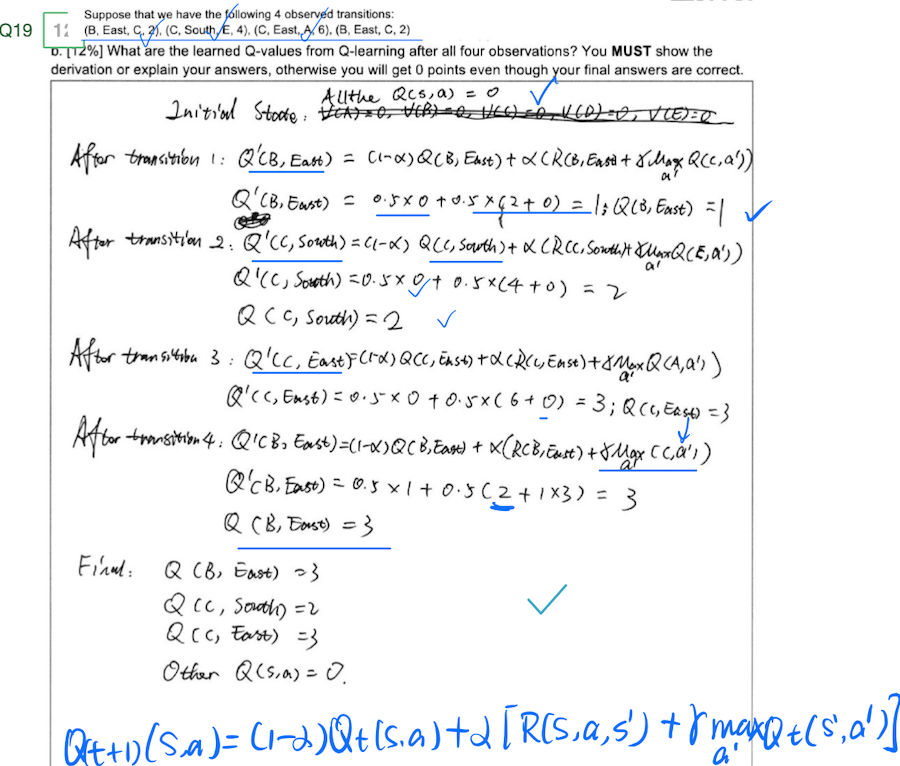 Suppose that we have the following 4 observed transitions:
Q19 12 (B, East, C, 2), (C, South, E, 4), (C, East, A, 6), (B, East, C, 2)
b. [12%] What are the learned Q-values from Q-learning after all four observations? You MUST show the
derivation or explain your answers, otherwise you will get 0 points even though your final answers are correct.
All the Q(s,a) = 0
Initial State: V(A)=0, V(B)=0, V(C)=0, V(D)=0, V(E)=0
After transition 1: Q'(B, East) = (1-α)Q(B, East) + α(R(B, East) + γ Max Q(C,a'))
a'
Q'(B, East) = 0.5×0 + 0.5×(2+0) = 1; Q(B, East) = 1
After transition 2: Q'(C, South) = (1-α) Q(C, South) + α(R(C, South)+ γMaxQ(E,a'))
a'
Q'(C, South) = 0.5×0 + 0.5×(4+0) = 2
Q(C, South) = 2
After transition 3: Q'(C, East)=(1-α)Q(C, East)+α(R(C, East)+γMaxQ(A,a'))
a'
Q'(C, East) = 0.5×0 + 0.5×(6+0) = 3; Q(C, East) = 3
After transition 4: Q'(B, East)=(1-α)Q(B, East) + α(R(B, East) + γMax (C,a'))
a'
Q'(B, East) = 0.5×1 + 0.5(2+1×3) = 3
Q (B, East) = 3
Final: Q (B, East) =3
Q (C, South) =2
Q (C, East) =3
Other Q(s,a) = 0.
Q(t+1)(S,a)= (1-α)Qt(S,a)+α[R(S,a,s') + γ maxQt(s',a')]
a'